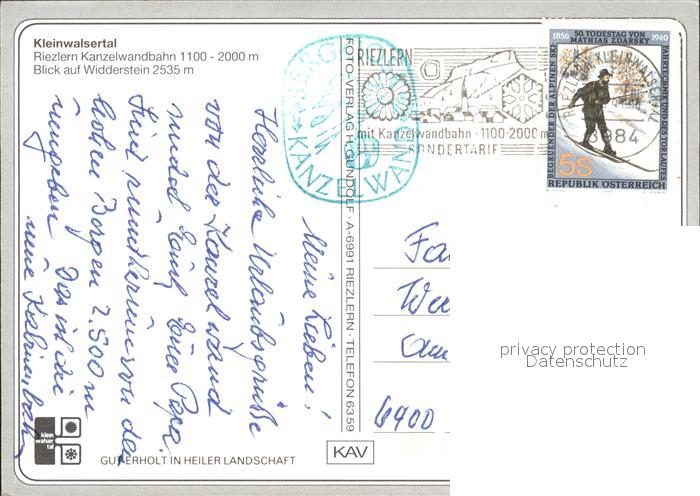 Kleinwalsertal
Riezlern Kanzelwandbahn 1100 - 2000 m
Blick auf Widderstein 2535 m
RIEZLERN
mit Kanzelwandbahn · 1100-2000 m
SONDERTARIF
KANZELWAND
1856 50. TODESTAG VON 1940
MATHIAS ZDARSKY
BEGRUENDER DER ALPINEN SKI-
FAHRTECHNIK UND DES TORLAUFES
5S
REPUBLIK ÖSTERREICH
FOTO-VERLAG H. GUNDOLF · A-6991 RIEZLERN · TELEFON 6359
Meine Lieben!
Herrliche Urlaubsgrüße
von der Kanzelwand
sendet Euch Euer Papa.
Sind rundherum von den
hohen Bergen 2.500 m
umgeben. Das ist die
neue Kabinenbahn
Fa
We
Am
6900
klein
walser
tal
GUT ERHOLT IN HEILER LANDSCHAFT
KAV
privacy protection
Datenschutz